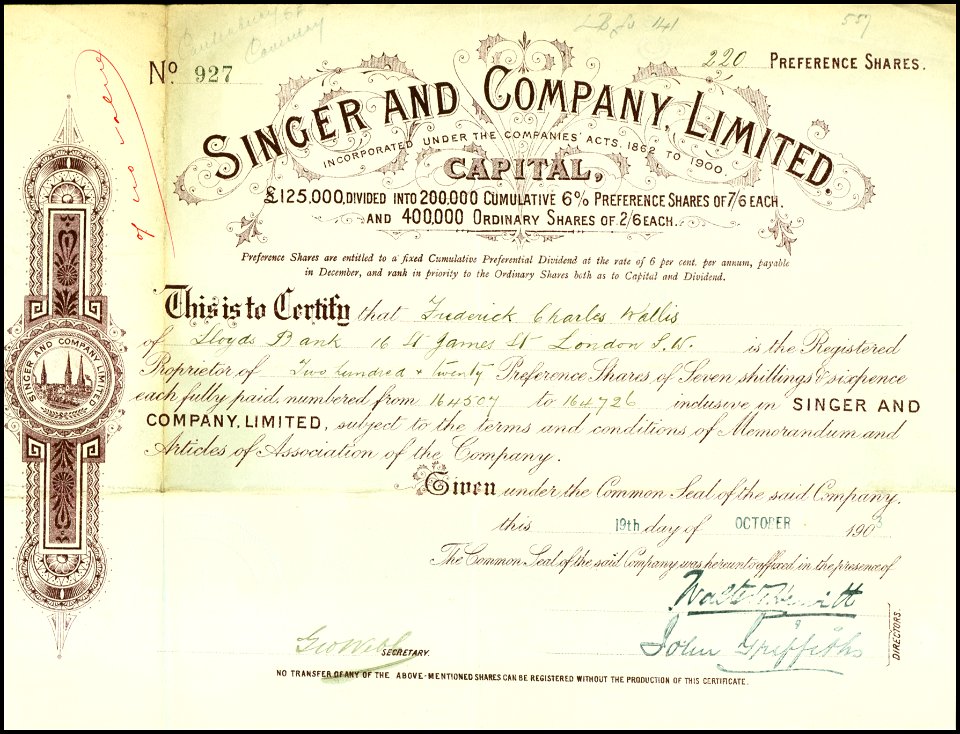 LB Ss 141
557
Nº 927
220 PREFERENCE SHARES.
of no value
SINGER AND COMPANY, LIMITED.
INCORPORATED UNDER THE COMPANIES' ACTS, 1862 TO 1900.
CAPITAL,
£125,000, DIVIDED INTO 200,000 CUMULATIVE 6% PREFERENCE SHARES OF 7/6 EACH.
AND 400,000 ORDINARY SHARES OF 2/6 EACH.
Preference Shares are entitled to a fixed Cumulative Preferential Dividend at the rate of 6 per cent. per annum, payable
in December, and rank in priority to the Ordinary Shares both as to Capital and Dividend.
This is to Certify that Frederick Charles Wallis
of Lloyds Bank 16 St James St London S.W. is the Registered
Proprietor of Two hundred & twenty Preference Shares of Seven shillings & sixpence
each fully paid, numbered from 164507 to 164726 inclusive in SINGER AND
COMPANY, LIMITED, subject to the terms and conditions of Memorandum and
Articles of Association of the Company.
Given under the Common Seal of the said Company,
this 19th day of OCTOBER 1903
The Common Seal of the said Company was hereunto affixed in the presence of
Walter Hewitt
John Griffiths
DIRECTORS.
Geo Webb SECRETARY.
NO TRANSFER OF ANY OF THE ABOVE-MENTIONED SHARES CAN BE REGISTERED WITHOUT THE PRODUCTION OF THIS CERTIFICATE.
SINGER AND COMPANY LIMITED